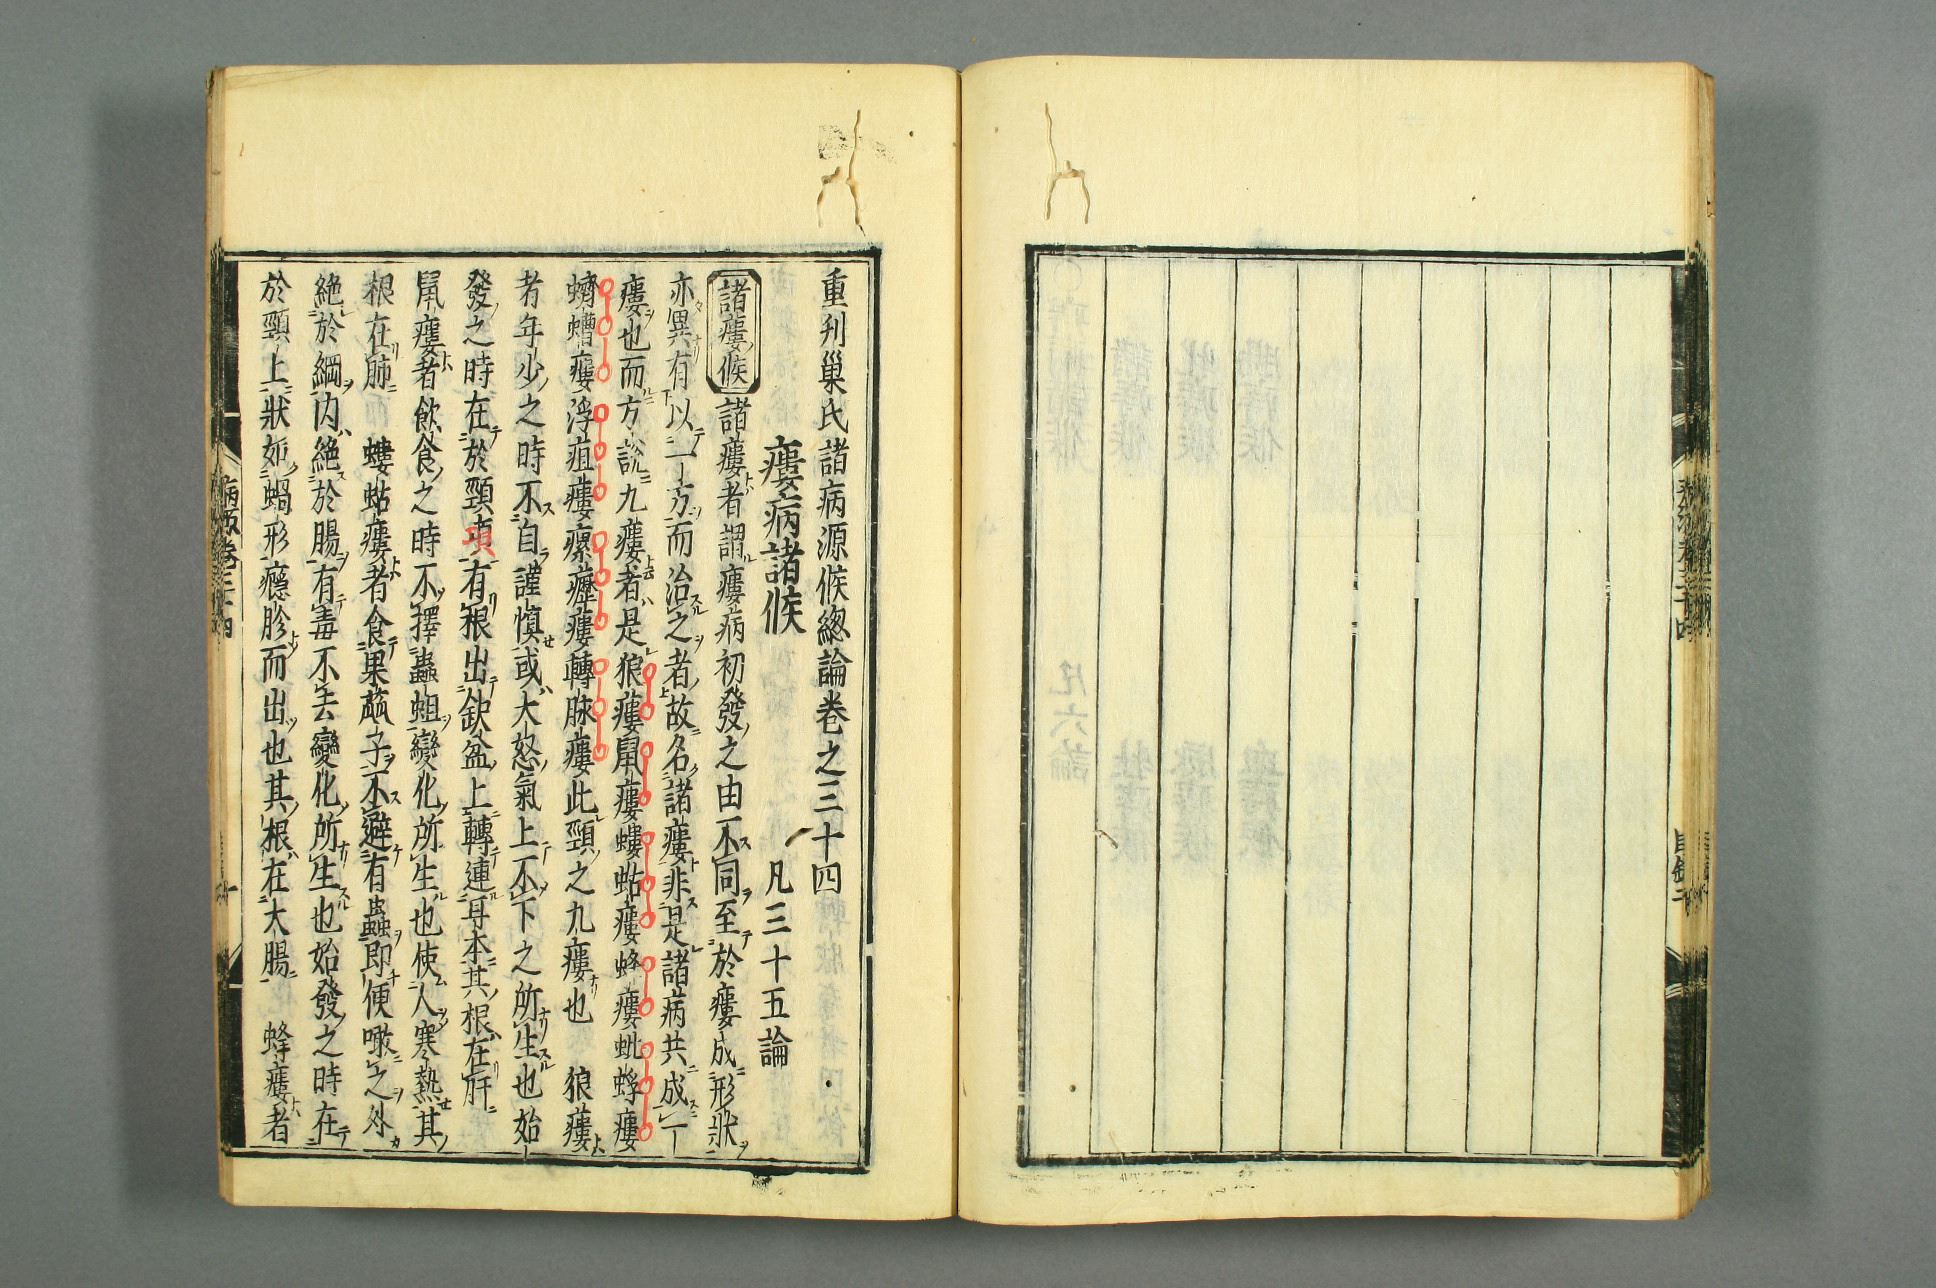 重刋巢氏諸病源候總論卷之三十四
瘻病諸候　凡三十五論
諸瘻候　諸瘻者謂瘻病初發之由不同至於瘻成形狀
亦異有以一方而治之者故名諸瘻非是諸病共成一
瘻也而方說九瘻者是狼瘻鼠瘻螻蛄瘻蜂瘻蚍蜉瘻
蠐螬瘻浮疽瘻瘰癧瘻轉脉瘻此頸之九瘻也　狼瘻
者年少之時不自謹慎或大怒氣上不下之所生也始
發之時在於頸項有根出缺盆上轉連耳本其根在肝
鼠瘻者飲食之時不擇蟲蛆變化所生也使人寒熱其
根在肺　螻蛄瘻者食果蓏子不避有蟲即便噉之外
絶於綱内絶於腸有毒不去變化所生也始發之時在
於頸上狀如蝸形癮胗而出也其根在大腸　蜂瘻者
病源卷三十四